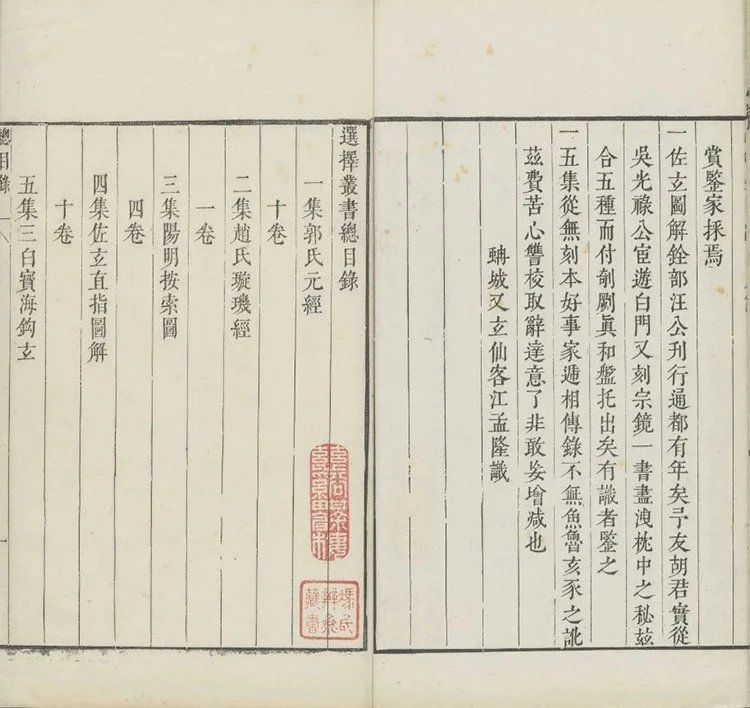 賞鑒家採焉
一佐玄圖解銓部汪公刊行通都有年矣予友胡君實從
吳光祿公宦遊白門又刻宗鏡一書盡洩枕中之秘玆
合五種而付剞劂眞和盤托出矣有識者鑒之
一五集從無刻本好事家遞相傳錄不無魚魯亥豕之訛
茲費苦心讐校取辭達意了非敢妄增减也
蚺城又玄仙客江孟隆識
選擇叢書總目錄
一集郭氏元經
十卷
二集趙氏璇璣經
一卷
三集陽明按索圖
四卷
四集佐玄直指圖解
十卷
五集三白寳海鈎玄
總目錄 一